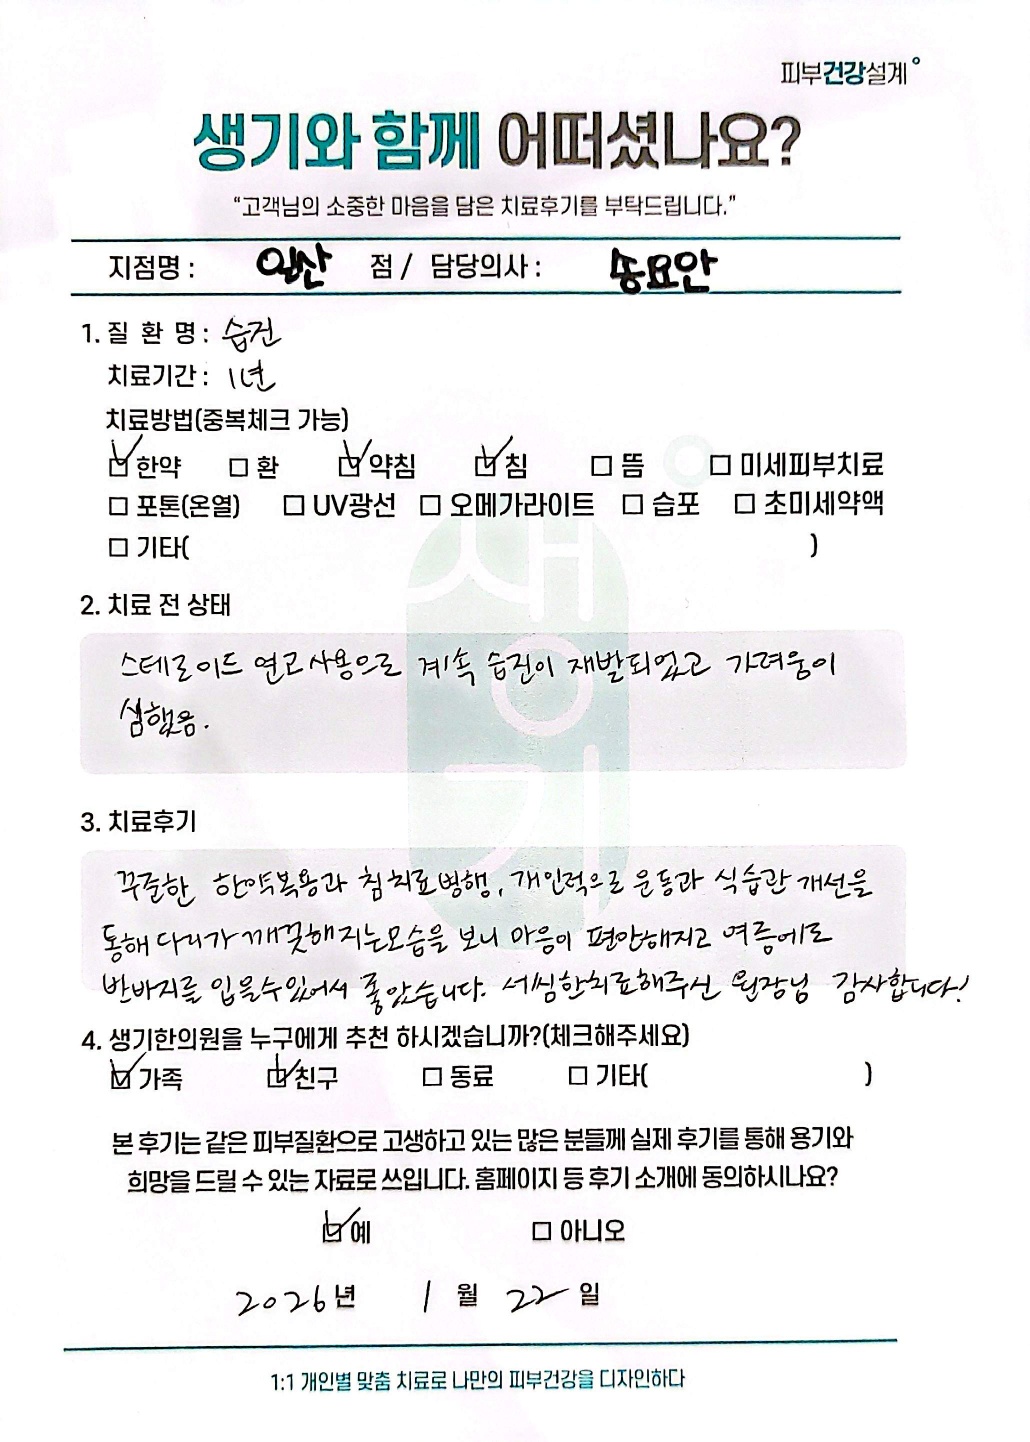 피부건강설계
생기와 함께 어떠셨나요?
“고객님의 소중한 마음을 담은 치료후기를 부탁드립니다.”
지점명 : 일산 점 / 담당의사 : 송요안
1. 질 환 명 : 습진
치료기간 : 1년
치료방법(중복체크 가능)
☑ 한약 ☐ 환 ☑ 약침 ☑ 침 ☐ 뜸 ☐ 미세피부치료
☐ 포톤(온열) ☐ UV광선 ☐ 오메가라이트 ☐ 습포 ☐ 초미세약액
☐ 기타( )
2. 치료 전 상태
스테로이드 연고사용으로 계속 습진이 재발되었고 가려움이
심했음.
3. 치료후기
꾸준한 한약복용과 침치료병행, 개인적으로 운동과 식습관 개선을
통해 다리가 깨끗해지는모습을 보니 마음이 편안해지고 여름에도
반바지를 입을수있어서 좋았습니다. 세심한치료해주신 원장님 감사합니다!
4. 생기한의원을 누구에게 추천 하시겠습니까?(체크해주세요)
☑ 가족 ☑ 친구 ☐ 동료 ☐ 기타( )
본 후기는 같은 피부질환으로 고생하고 있는 많은 분들께 실제 후기를 통해 용기와
희망을 드릴 수 있는 자료로 쓰입니다. 홈페이지 등 후기 소개에 동의하시나요?
☑ 예 ☐ 아니오
2026년 1월 22일
1:1 개인별 맞춤 치료로 나만의 피부건강을 디자인하다
생기